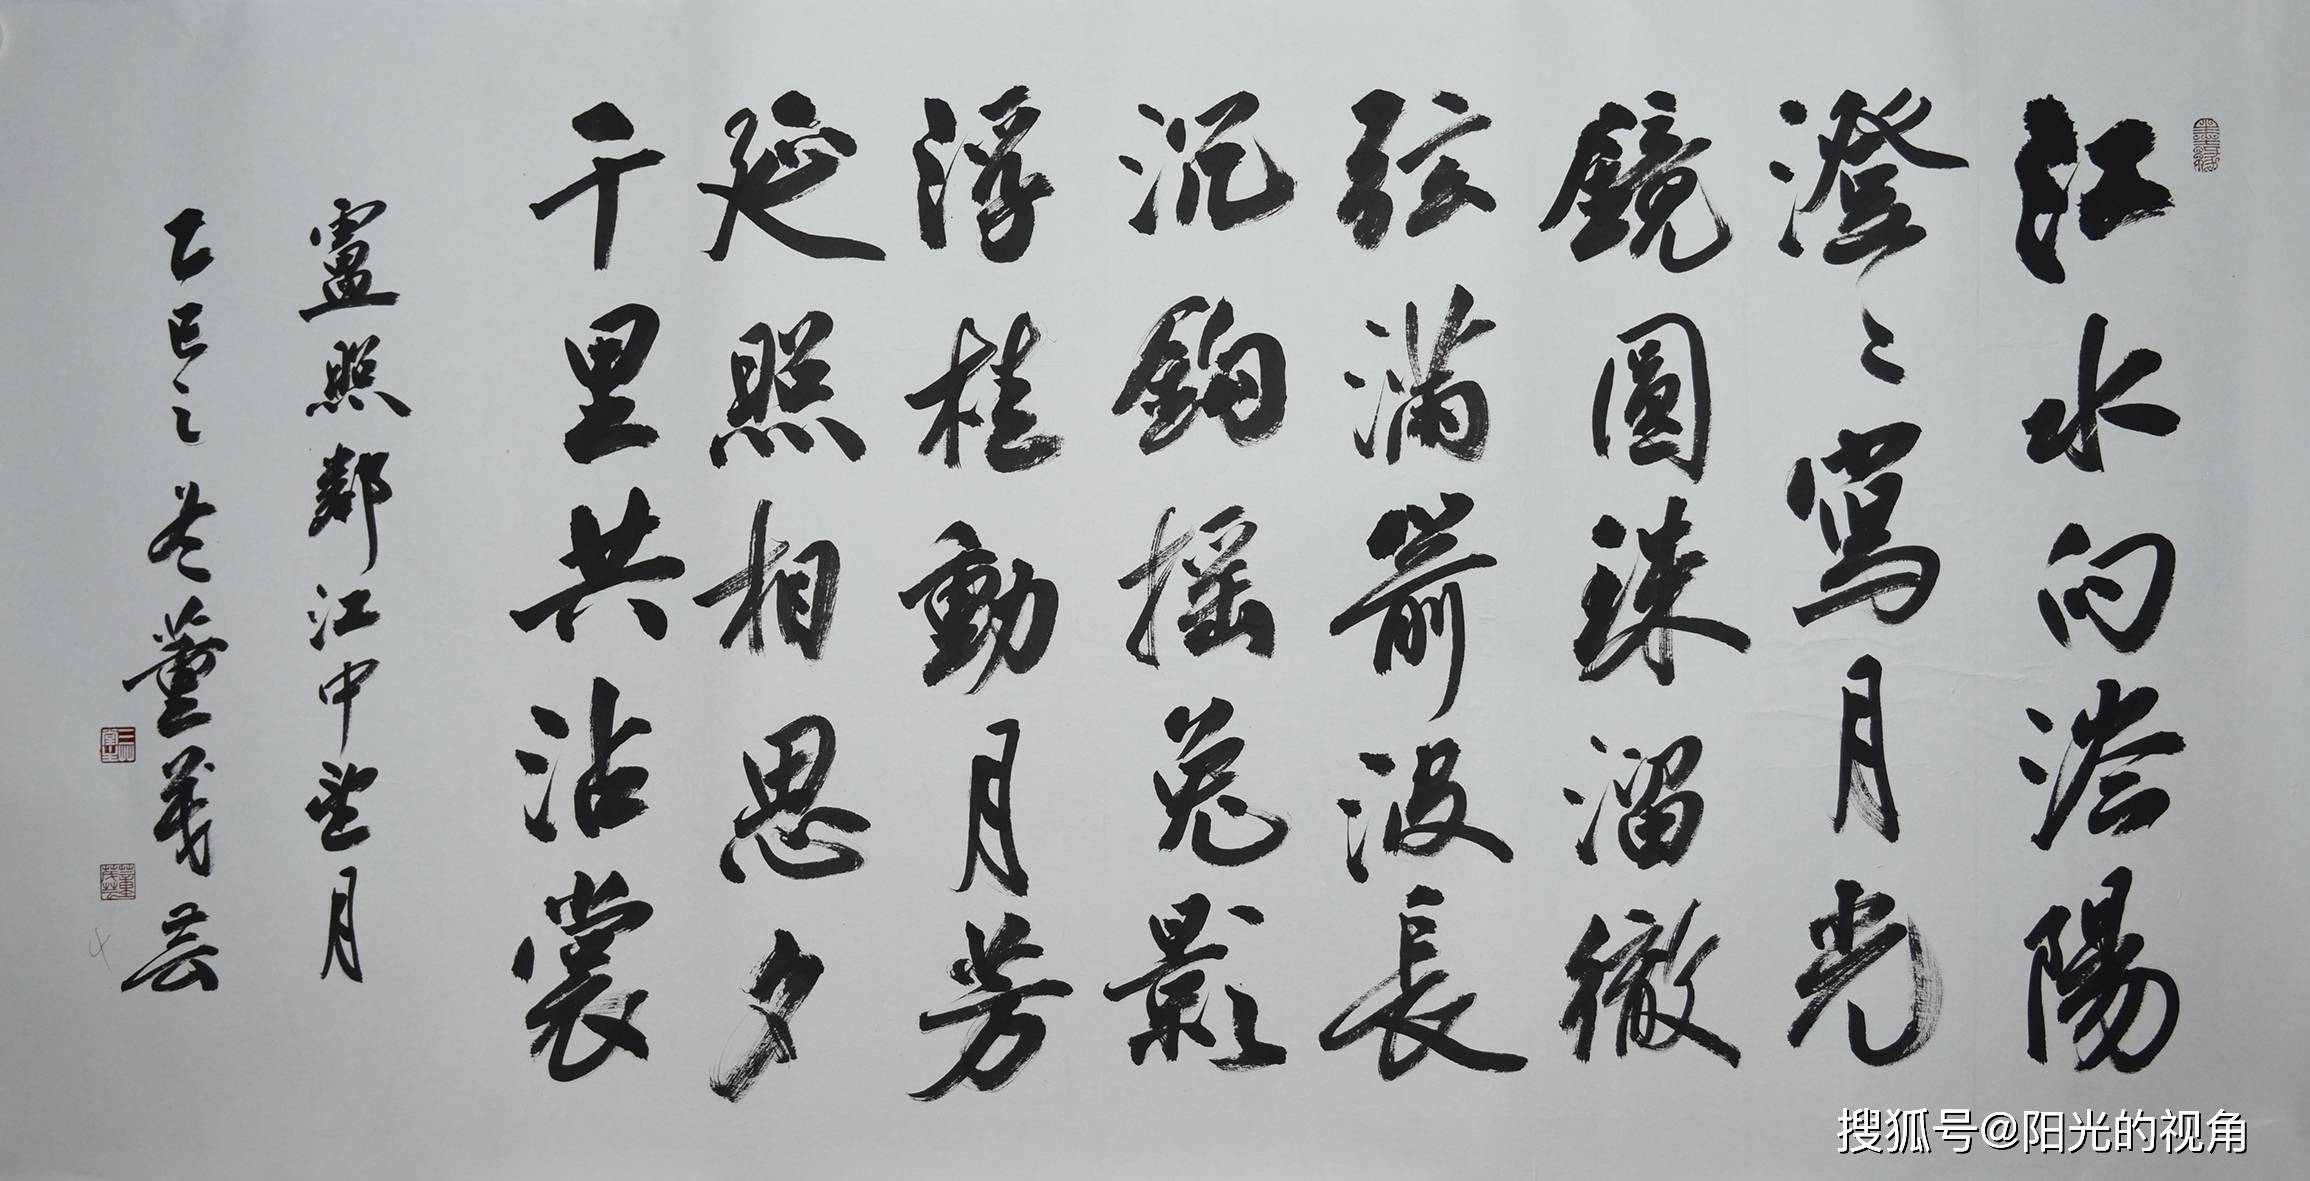 江水向涔陽
澄〻寫月光
鏡圓珠溜徹
弦滿箭波長
沉鈎摇兔影
浮桂動月芳
延照相思夕
千里共沾裳
盧照鄰江中望月
乙巳之 董茂芸
董茂芸
搜狐号@阳光的视角